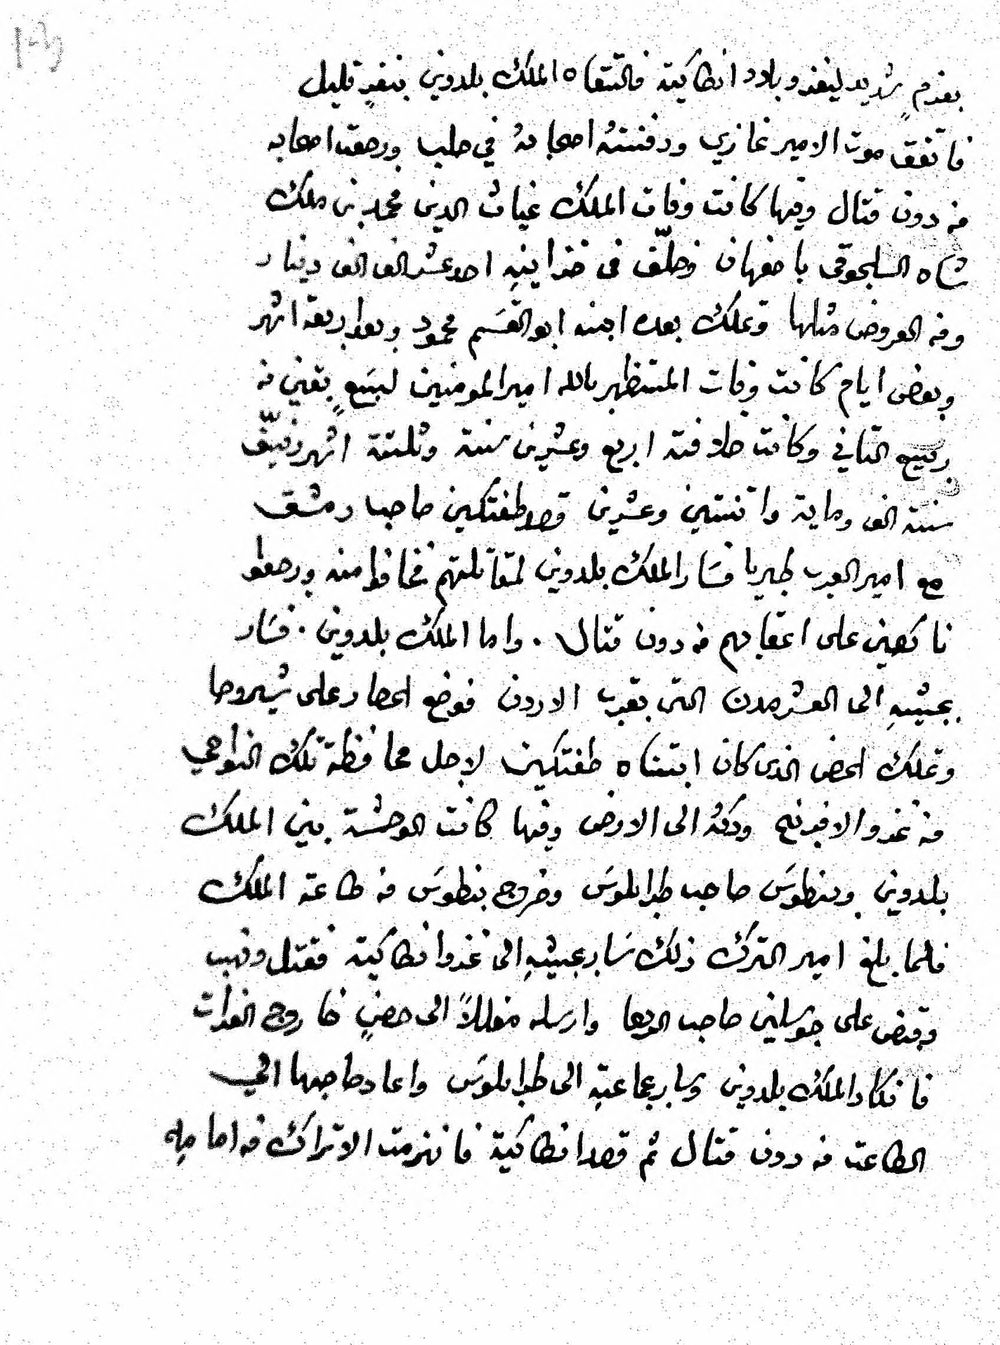 بعزمٍ شديد ليغزو بلاد انطاكية فالتقاه الملك بلدوين بنفرٍ قليل
فاتفق موت الامير غازي ودفنته اصحابهُ في حلب ورجعت اصحابه
من دون قتال وفيها كانت وفات الملك غياث الدين محمد بن ملك
شاه السلجوقي باصفهان وخلّف في خزاينهِ احد عشر الف الف دينار
ومن العروض مثلها وتملك بعده ابنه ابو القسم محمود وبعد اربعة اشهر
وبعض ايام كانت وفات المستظهر بالله امير المومنين لسبعٍ بقين من
ربيع الثاني وكانت خلافته اربع وعشرين سنة وثلثة اشهر ونيّف
سنة الف وماية واثنتين وعشرين قصد طغتكين صاحب دمشق
مع امير العرب طبريا فسار الملك بلدوين لمقاتلتهم فخافوا منه ورجعوا
ناكصين على اعقابهم من دون قتال . واما الملك بلدوين . فسار
بجيشهِ الى العشر مدن التي بقرب الاردن فوضع الحصار على
وتملك الحصن الذي كان ابتناه طغتكين لاجل محافظة تلك النواحي
من غزو الافرنج ودكهُ الى الارض وفيها كانت الوحشة بين الملك
بلدوين وبنطوس صاحب طرابلوس وخروج بنطوس من طاعة الملك
فلما بلغ امير الترك ذلك سار بجيشهِ الى غزو انطاكية فقتل ونهب
وقبض على جوسلين صاحب الرها وارسله مغللاً الى حصنٍ خاروج الفرات
فانكاد الملك بلدوين وسار بجماعتهِ الى طرابلوس واعاد صاحبها الى
الطاعت من دون قتال ثم قصد انطاكية فانهزمت الاتراك من امامهِ